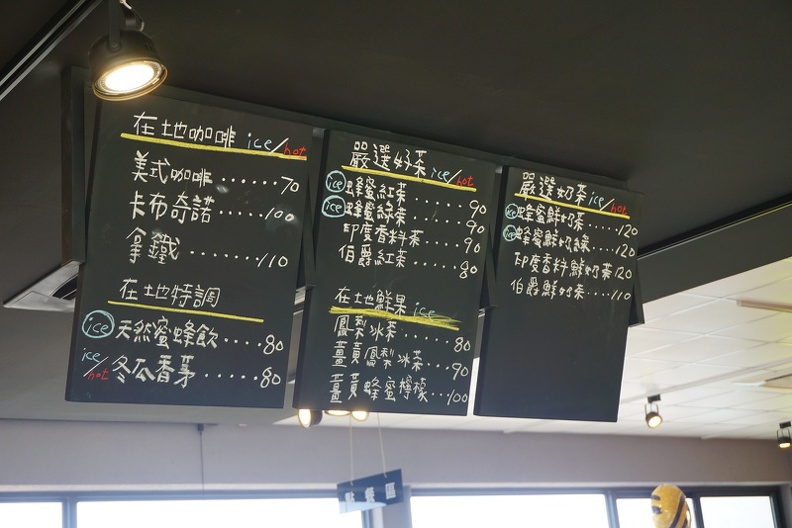 在地咖啡 ice/hot
美式咖啡.......70
卡布奇諾......100
拿鐵......110
在地特調
ice 天然蜜蜂飲.....80
ice/hot 冬瓜香茅.....80
嚴選好茶 ice/hot
ice 蜂蜜紅茶.....90
ice 蜂蜜綠茶.....90
印度香料茶....90
伯爵紅茶.....80
在地鮮果 ice
鳳梨冰茶.....80
薑黃鳳梨冰茶....90
薑黃蜂蜜檸檬...100
嚴選奶茶 ice/hot
ice 蜂蜜鮮奶茶....120
ice 蜂蜜鮮奶綠...120
印度香料鮮奶茶120
伯爵鮮奶茶....110
點餐區